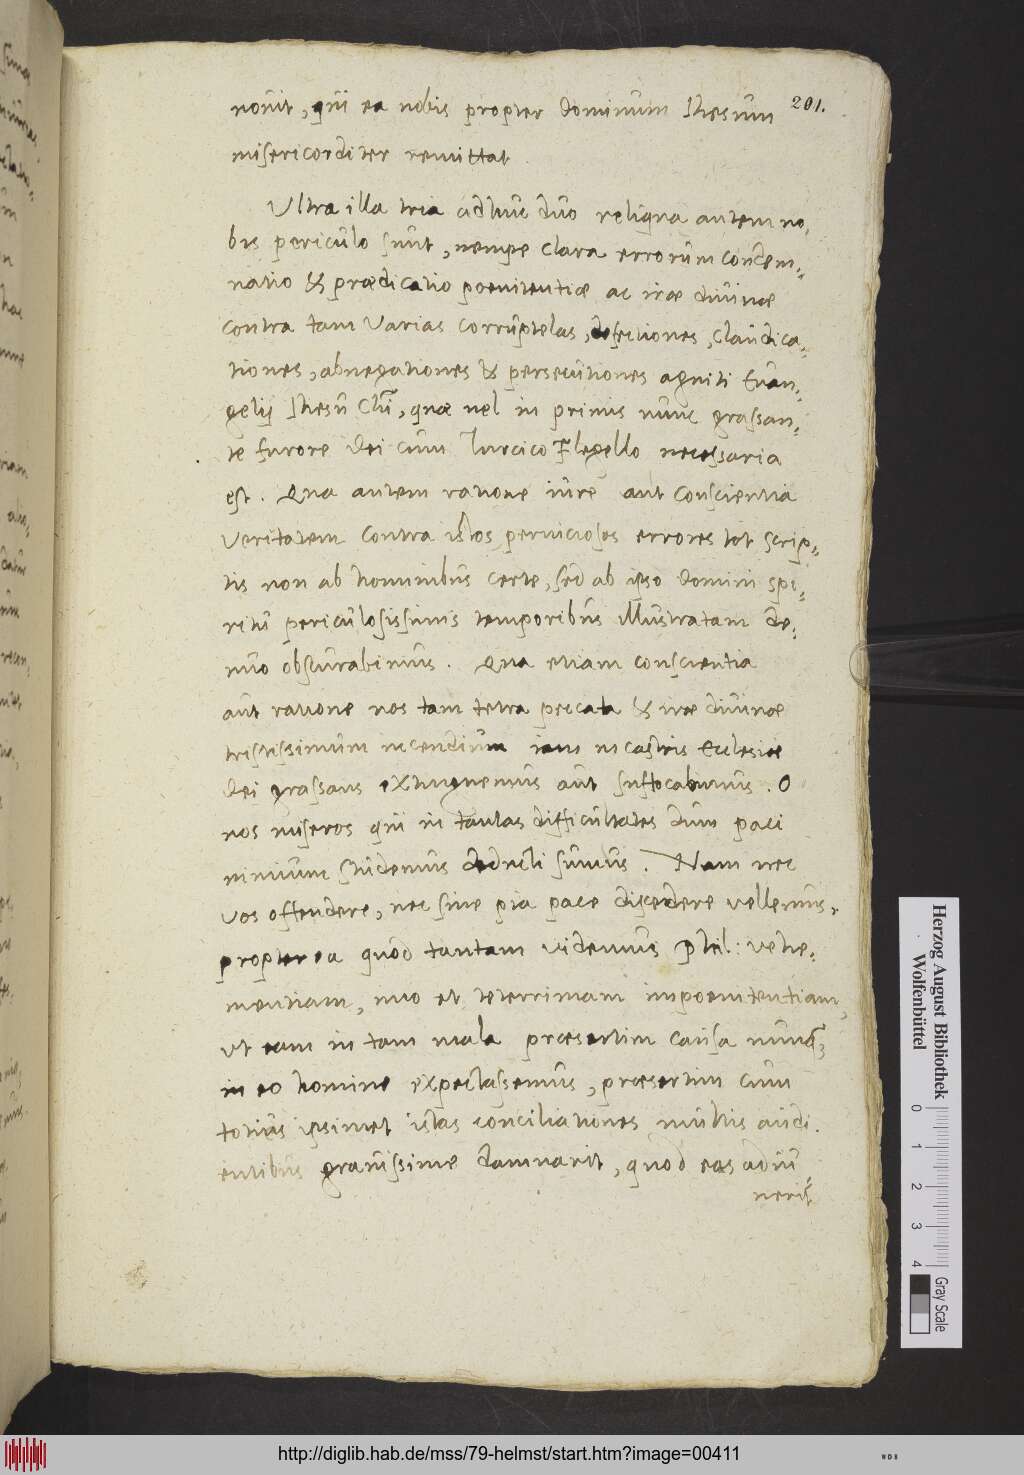 201.
novit, qui ea nobis propter Dominum Ihesum
misericorditer remittat
Ultra illa tria adhuc duo reliqua autem no-
bis periculo sunt, nempe clara errorum condem-
natio & prædicatio poenitentiæ ac iræ divinæ
contra tam varias corruptelas, defectiones, claudica-
tiones, abnegationes & persecutiones agniti Evan-
gelij Ihesu Chri, quæ vel in primis nunc grassan-
te furore Dei cum Turcico Flegello necessaria
est. Qua autem ratione iure aut conscientia
veritatem contra istos perniciosos errores tot scrip-
tis non ab hominibus certe, sed ab ipso Domini spi-
ritu periculosissimis temporibus illustratam de-
nuo obscurabimus. Qua etiam conscientia
aut ratione nos tam tetra peccata & iræ divinæ
tristissimum incendium iam in castris Ecclesiæ
Dei grassans extinguemus aut suffocabimus. O
nos miseros qui in tantas difficultates dum paci
nimium studemus deducti sumus. Nam nec
vos offendere, nec sine pia pace discedere vellemus,
propterea quod tantam videmus Phil: vehe-
mentiam, imo et teterrimam impoenitentiam,
ut eam in tam mala præsertim causa nunq
in eo homine expectassemus, præsertim cum
totius ipsimet istas conciliationes multis audi-
entibus gravissime damnarit, quod eas adiu-
verit
Herzog August Bibliothek
Wolfenbüttel
0 1 2 3 4
Gray Scale
http://diglib.hab.de/mss/79-helmst/start.htm?image=00411